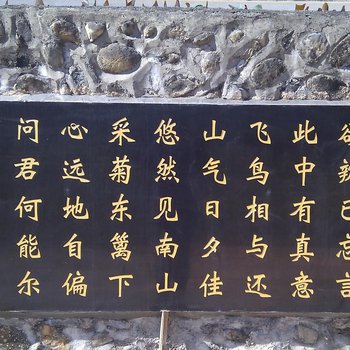 问君何能尔
心远地自偏
采菊东篱下
悠然见南山
山气日夕佳
飞鸟相与还
此中有真意
欲辨已忘言